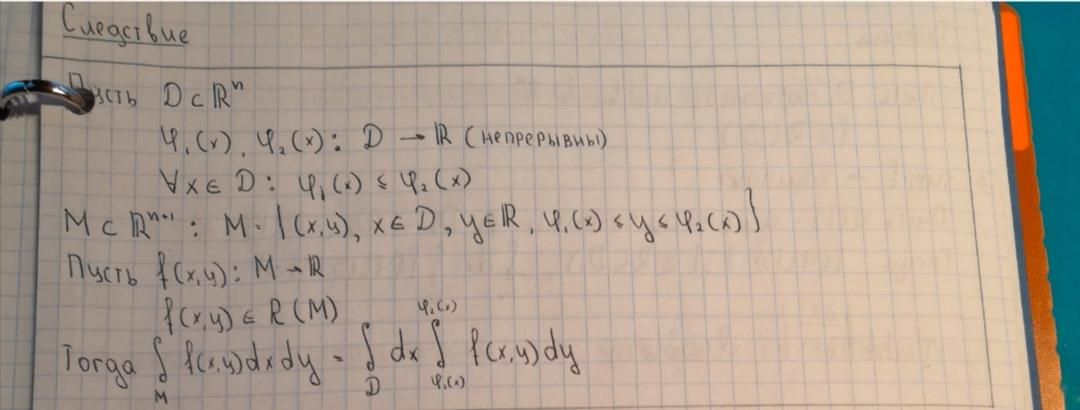 Следствие
Пусть D ⊂ ℝⁿ
φ₁(x), φ₂(x): D → ℝ (непрерывны)
∀x ∈ D: φ₁(x) ≤ φ₂(x)
M ⊂ ℝⁿ⁺¹: M = {(x,y), x ∈ D, y ∈ ℝ, φ₁(x) ≤ y ≤ φ₂(x)}
Пусть f(x,y): M → ℝ
f(x,y) ∈ R(M)
Тогда ∫_M f(x,y)dxdy = ∫_D dx ∫_{φ₁(x)}^{φ₂(x)} f(x,y)dy